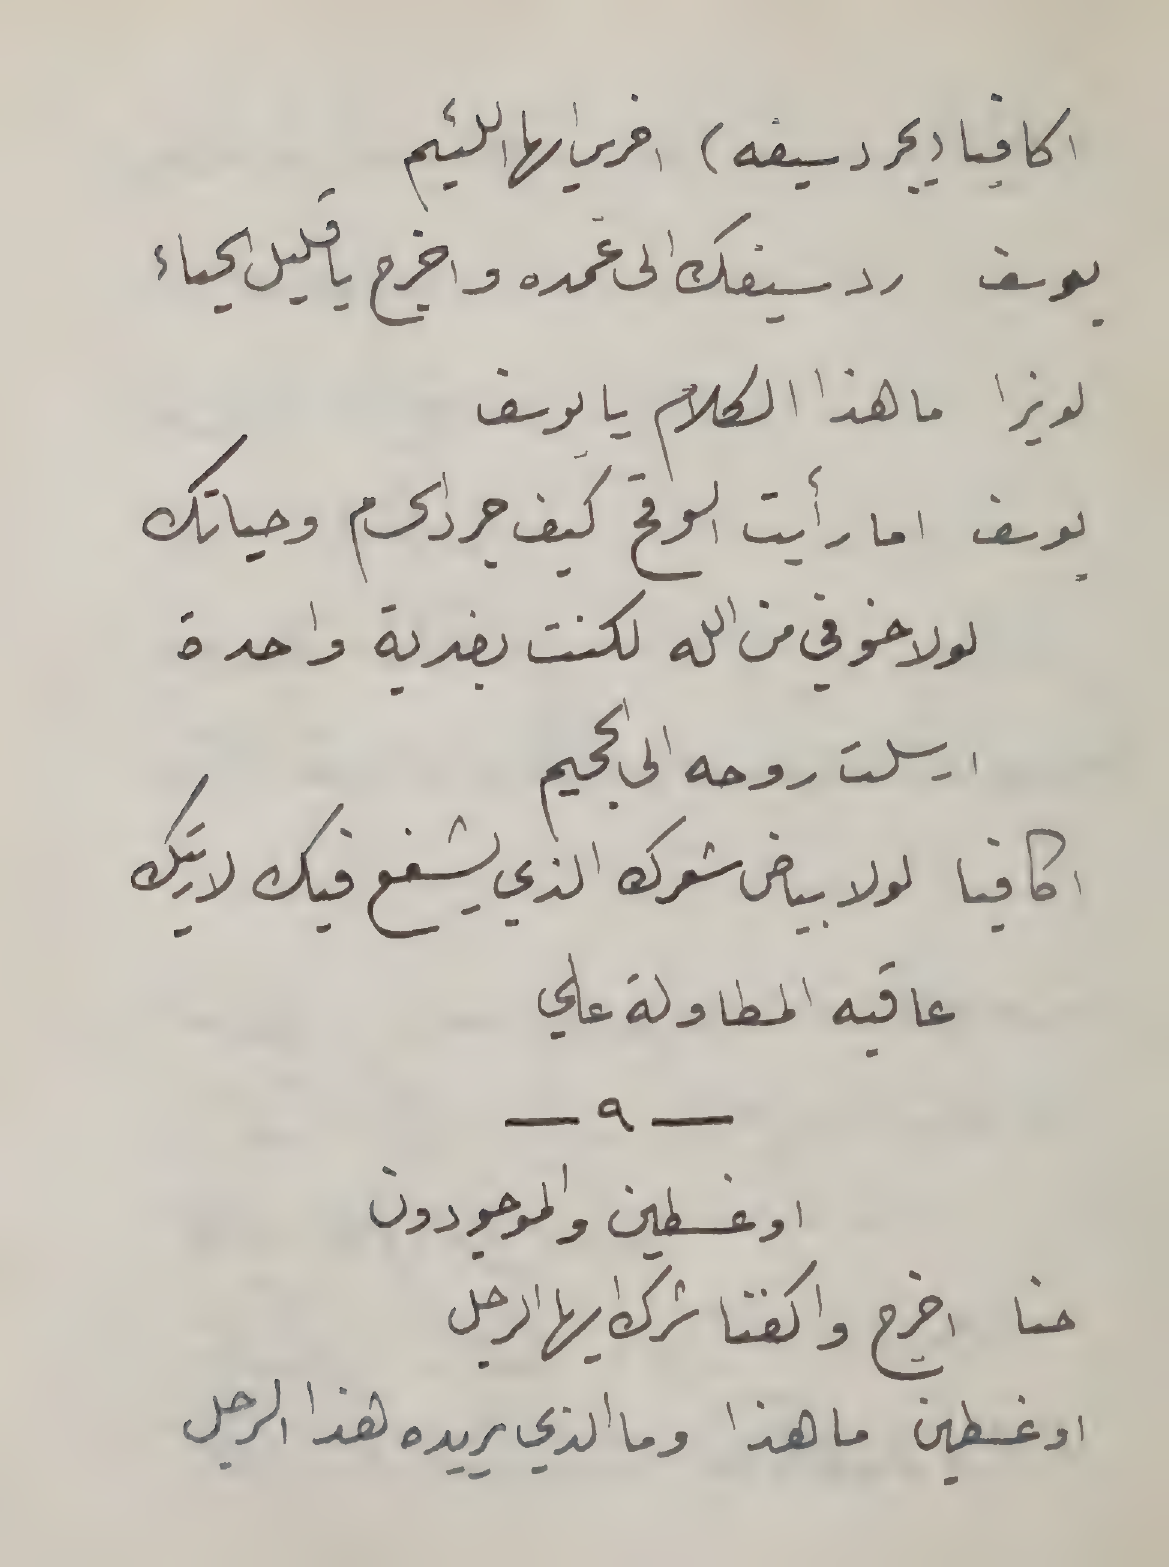 اكافيا (يجرد سيفه) اخرس ايها اللئيم
يوسف رد سيفك الى غمده واخرج يا قليل الحياء
لويزا ما هذا الكلام يا يوسف
يوسف اما رأيت الوقح كيف جرد الحسام وحياتك
لولا خوفي من الله لكنت بضربة واحدة
ارسلت روحه الى الجحيم
اكافيا لولا بياض شعرك الذي يشفع فيك لاريتك
عاقبه المطاولة علي
— ٩ —
اوغسطين والموجودون
حنا اخرج واكفنا شرك ايها الرجل
اوغسطين ما هذا وما الذي يريده هذا الرجل